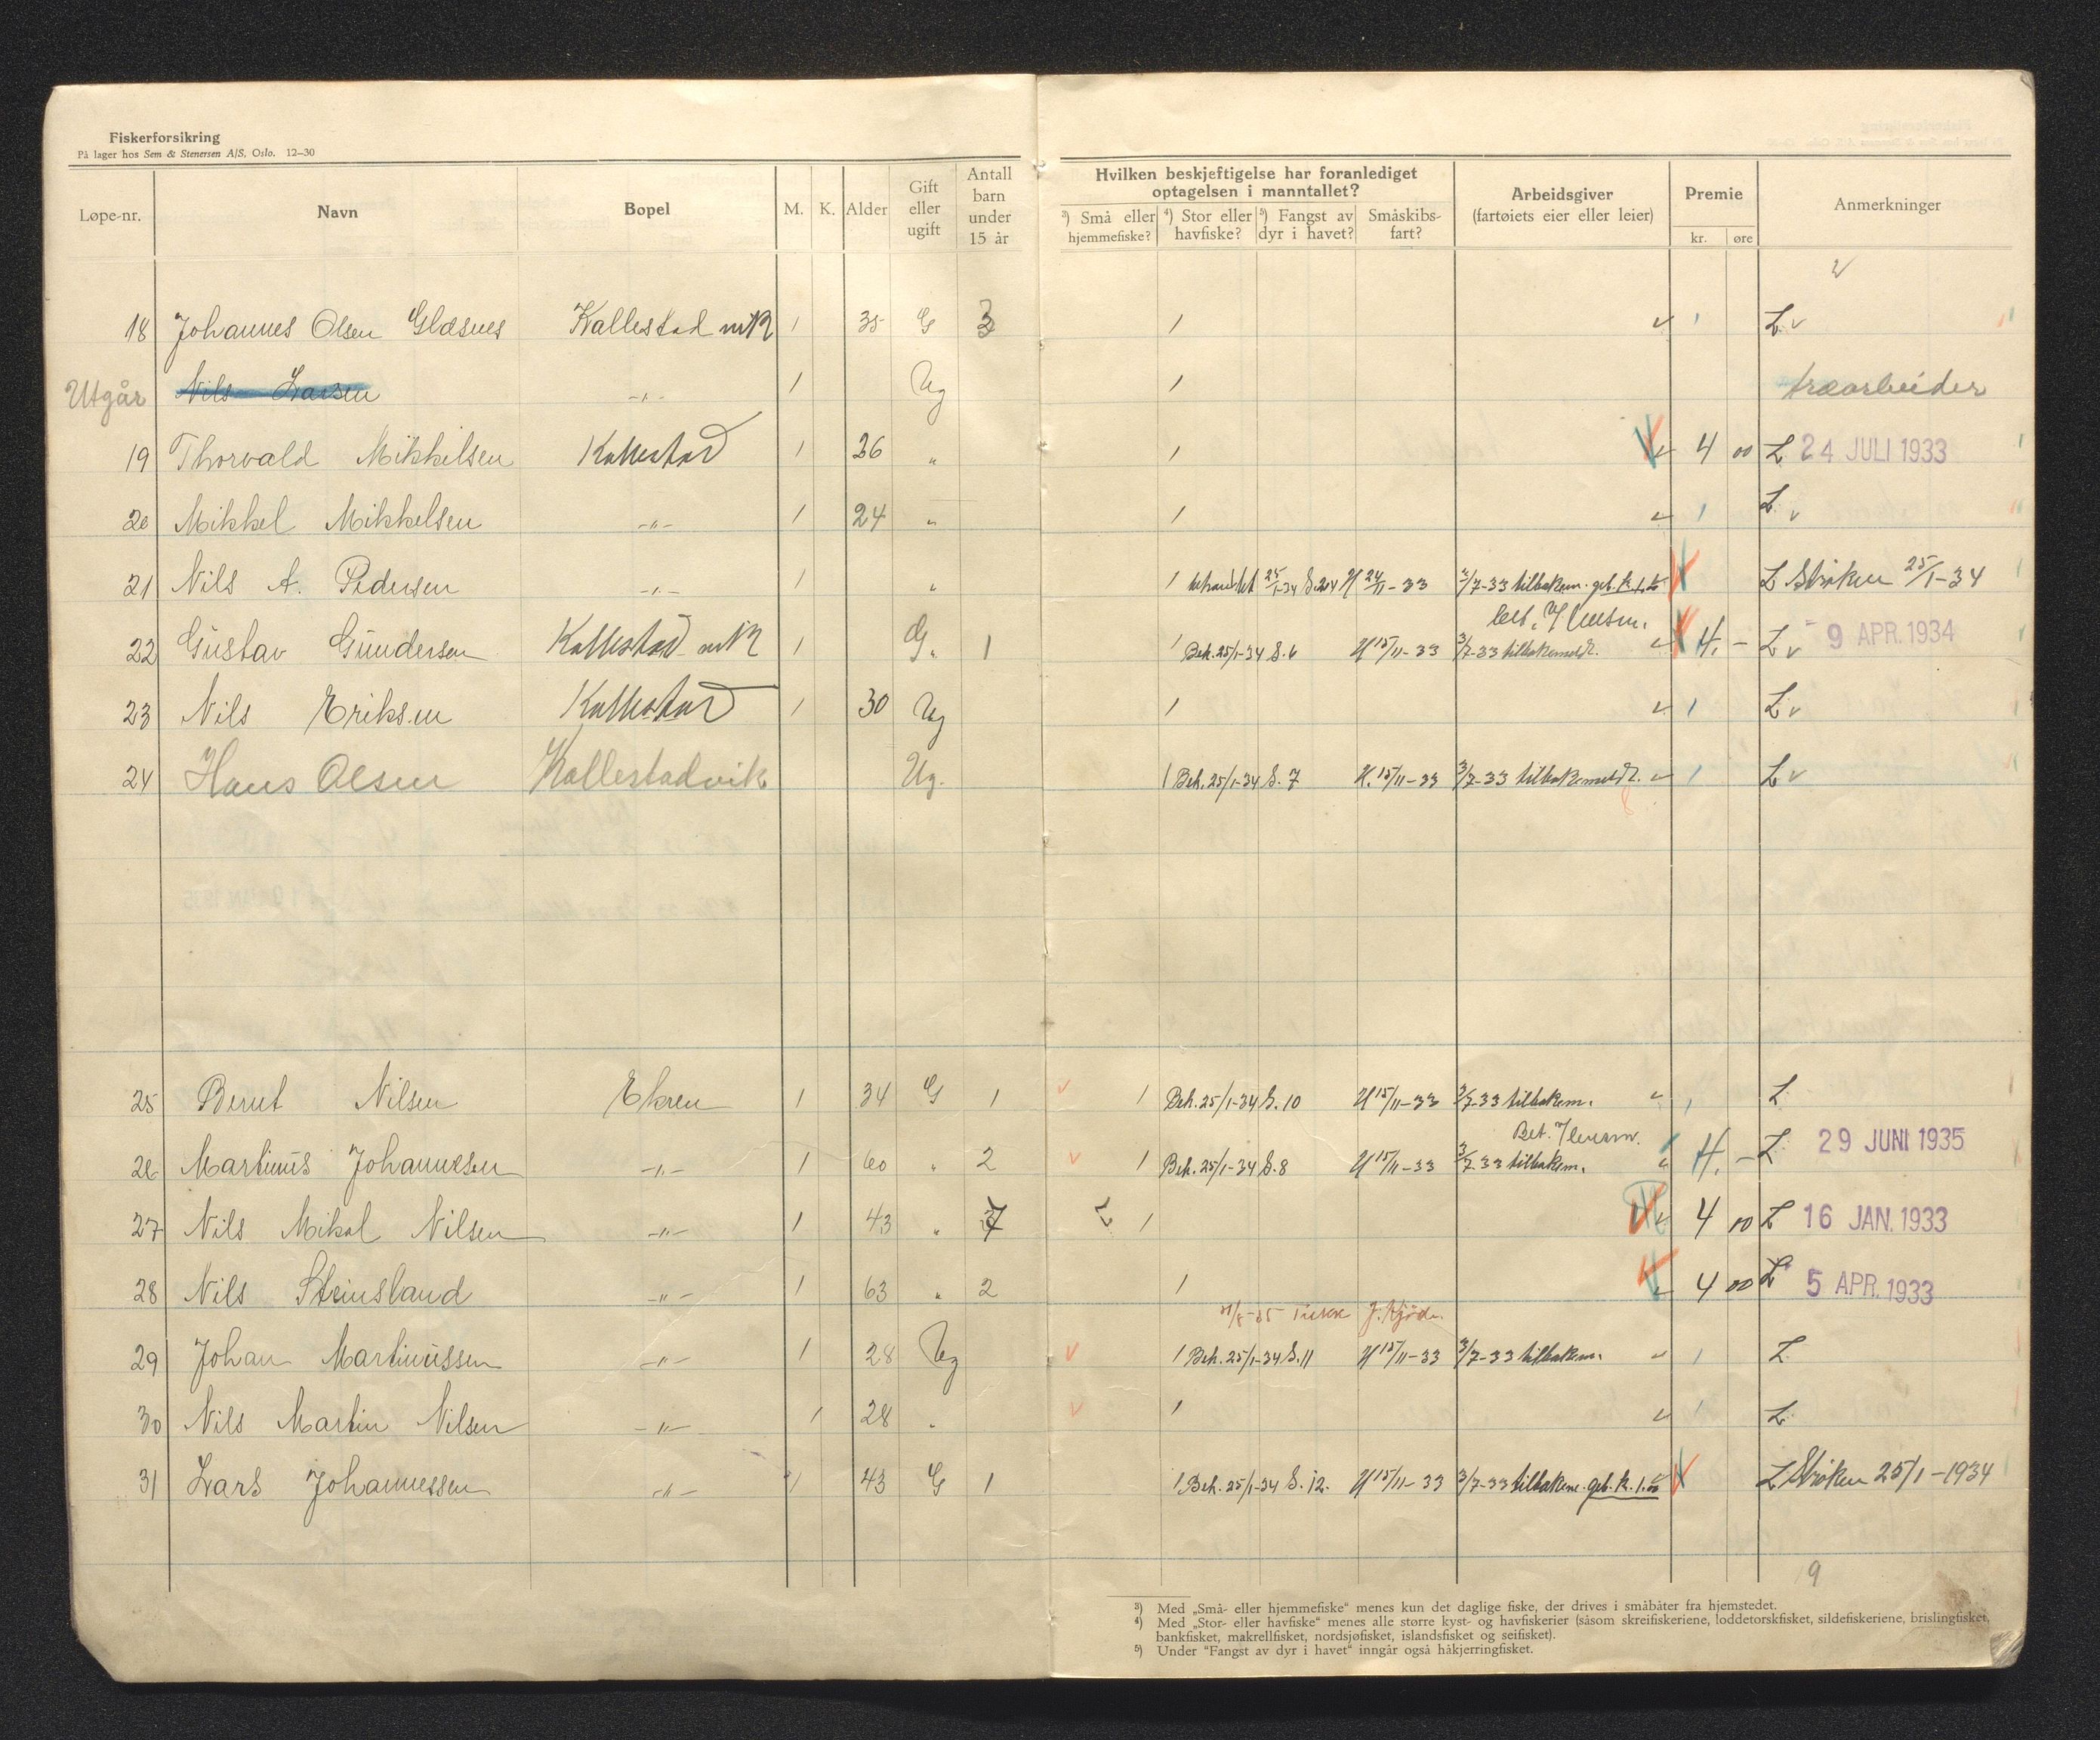 Fiskerforsikring
På lager hos Sem & Stenersen A/S, Oslo. 12–30
Løpe-nr. Navn Bopel M. K. Alder Gift eller ugift Antall barn under 15 år
Hvilken beskjeftigelse har foranlediget optagelsen i manntallet?
³) Små eller hjemmefiske? ⁴) Stor eller havfiske? ⁵) Fangst av dyr i havet? Småskibs-fart?
Arbeidsgiver (fartøiets eier eller leier) Premie kr. øre Anmerkninger
18 Johannes Olsen Glæsnes Kallestad 1 35 G 3 1 L v
Utgår Nils Larsen -"- 1 Ug 1 træarbeider
19 Thorvald Mikkelsen Kallestad 1 26 " 1 4 00 L 24 JULI 1933
20 Mikkel Mikkelsen -"- 1 24 " 1 L v
21 Nils A. Pedersen -"- 1 " 1 behandlet 25/1-34 S. 24/11-33 3/7-33 tilbakem. geb. k. 1.00 L Strøken 25/1-34
22 Gustav Gundersen Kallestad 1 G. 1 1 Beh. 25/1-34 S. 6 U 15/11-33 3/7-33 tilbakemeldt. 4. - L v 9 APR. 1934
23 Nils Eriksen Kallestad 1 30 Ug 1 L v
24 Hans Olsen Kallestadvik Ug. 1 Beh. 25/1-34 S. 7 U. 15/11-33 3/7-33 tilbakemeldt. L v
25 Bernt Nilsen Ekren 1 34 G 1 1 Beh. 25/1-34 S. 10 U 15/11-33 3/7-33 tilbakem. L
26 Martinus Johannesen -"- 1 60 " 2 1 Beh. 25/1-34 S. 8 U 15/11-33 3/7-33 tilbakem. Bet. 4. - L 29 JUNI 1935
27 Nils Mikal Nilsen -"- 1 43 " 7 1 4 00 L 16 JAN. 1933
28 Nils Steinsland -"- 1 63 " 2 1 4 00 L 5 APR. 1933
29 Johan Martinussen -"- 1 28 Ug 1 Beh. 25/1-34 S. 11 U 15/11-33 3/7-33 tilbakem. L
30 Nils Martin Nilsen -"- 1 28 " 1 L
31 Lars Johannessen -"- 1 43 G 1 1 Beh. 25/1-34 S. 12. U 15/11-33 3/7-33 tilbakem. geb. k. 1.00 L Strøken 25/1-1934
9
³) Med „Små- eller hjemmefiske“ menes kun det daglige fiske, der drives i småbåter fra hjemstedet.
⁴) Med „Stor- eller havfiske“ menes alle større kyst- og havfiskerier (såsom skreifiskeriene, loddetorskfisket, sildefiskeriene, brislingfisket,
bankfisket, makrellfisket, nordsjøfisket, islandsfisket og seifisket).
⁵) Under “Fangst av dyr i havet“ inngår også håkjerringfisket.